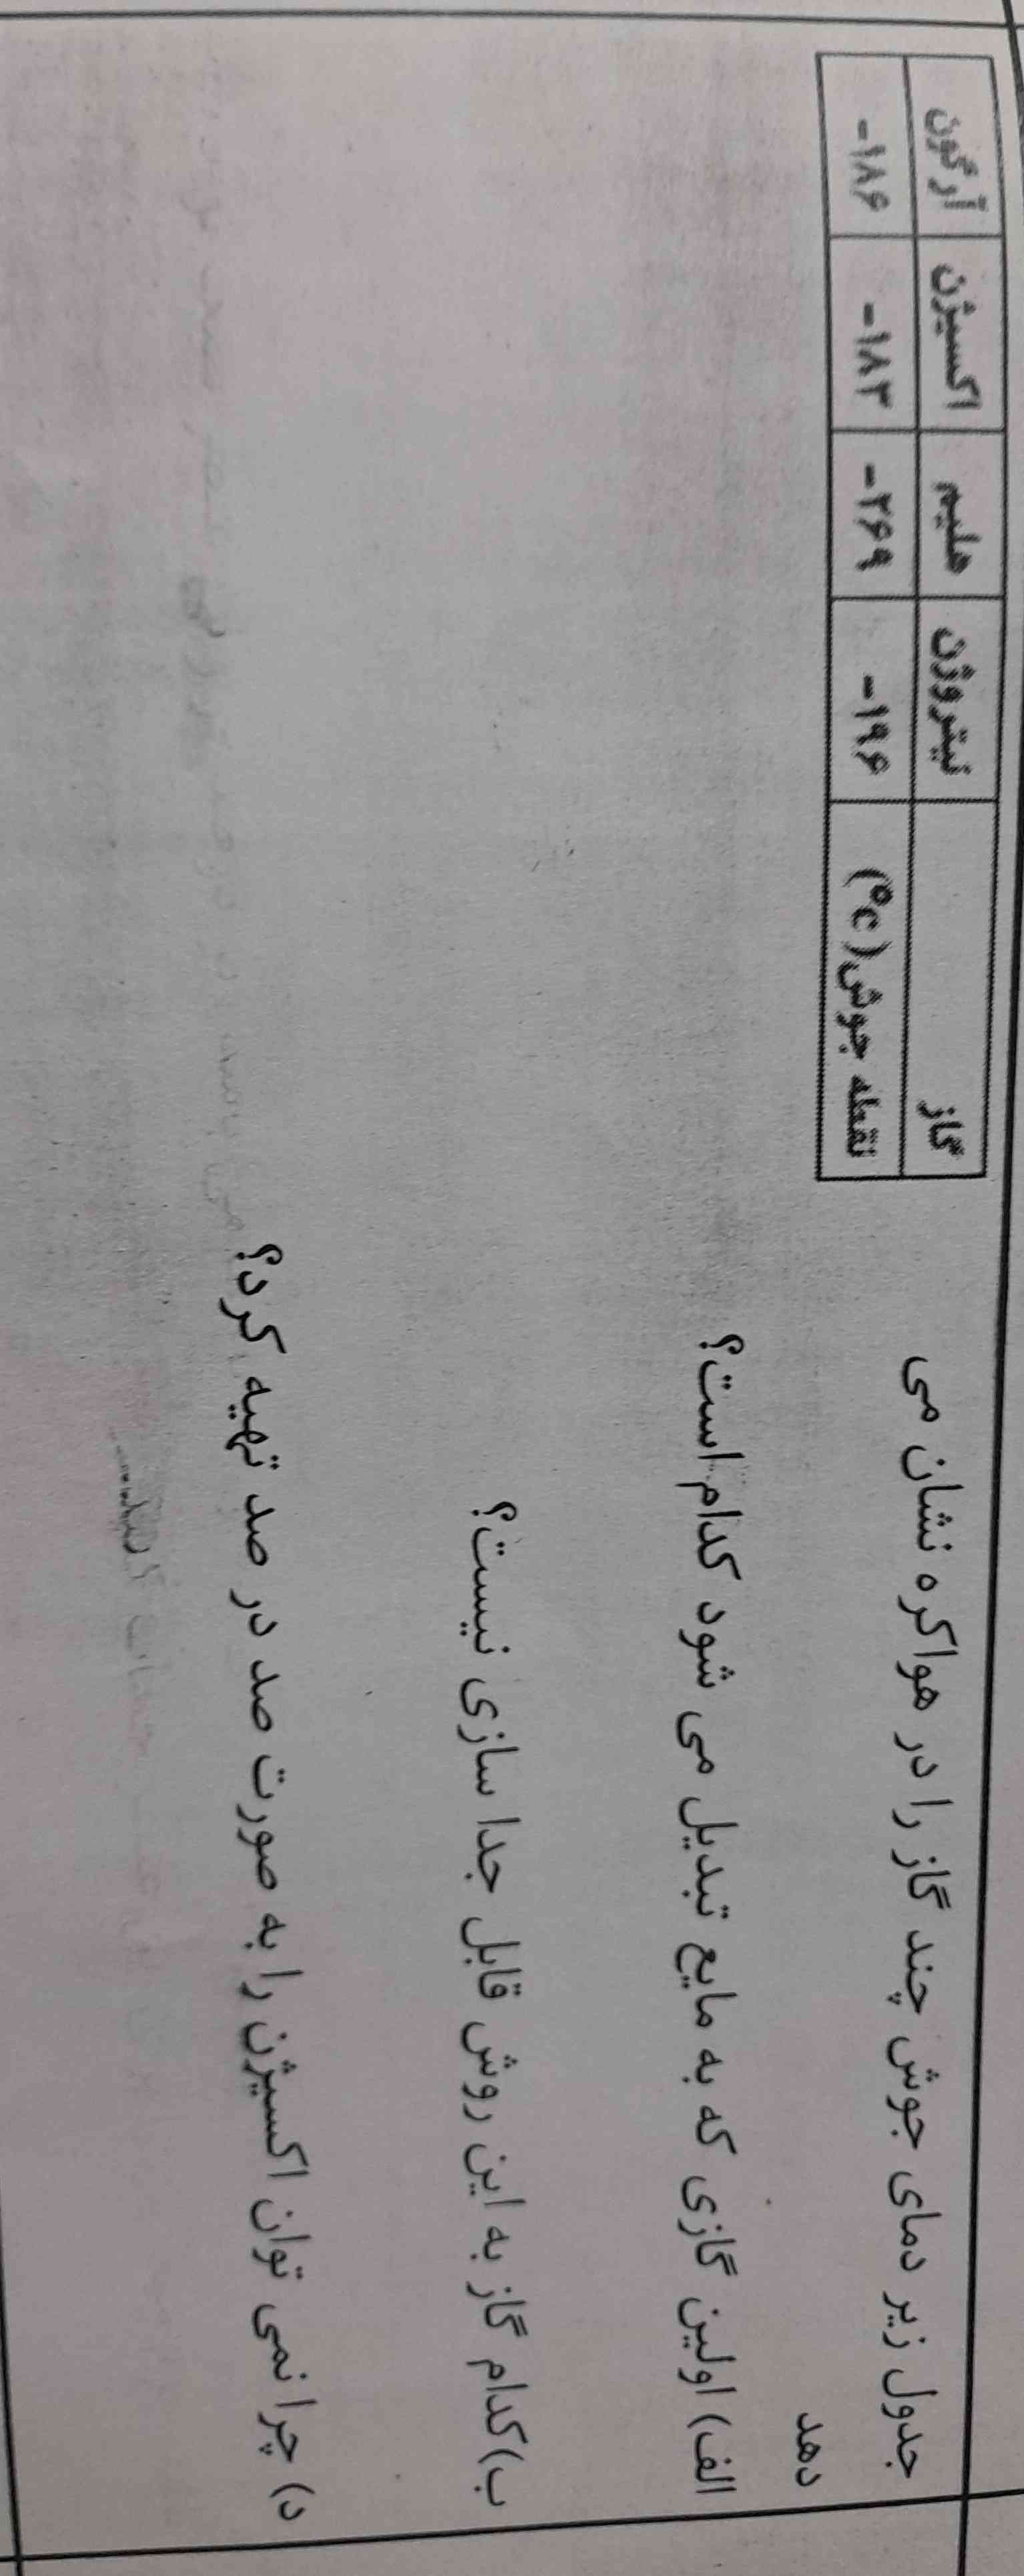 جدول زیر دمای جوش چند گاز را در هواکره نشان می
دهد
گاز نیتروژن هلیم اکسیژن آرگون
نقطه جوش(°C) -۱۹۶ -۲۶۹ -۱۸۳ -۱۸۶
الف) اولین گازی که به مایع تبدیل می شود کدام است؟
ب)کدام گاز به این روش قابل جدا سازی نیست؟
د) چرا نمی توان اکسیژن را به صورت صد در صد تهیه کرد؟